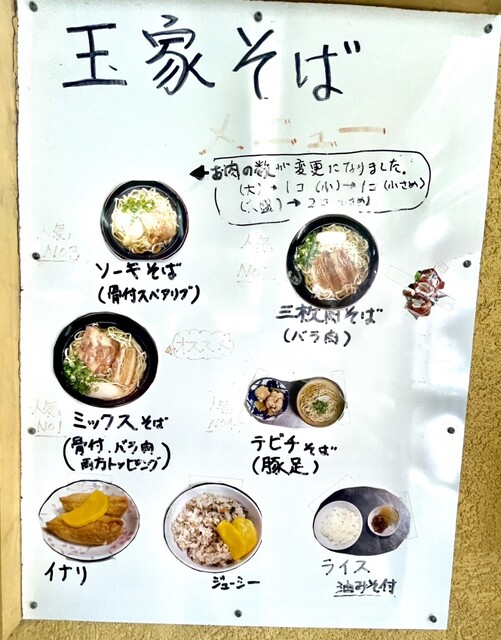 玉家そば
メニュー
お肉の数が変更になりました。
(大)→1コ (小)→1コ(小さめ)
→2コ
人気
No3
ソーキそば
(骨付スペアリブ)
人気
三枚肉そば
(バラ肉)
オススメ
人気
No1
ミックスそば
(骨付、バラ肉
両方トッピング)
テビチそば
(豚足)
イナリ
ジューシー
ライス
油みそ付